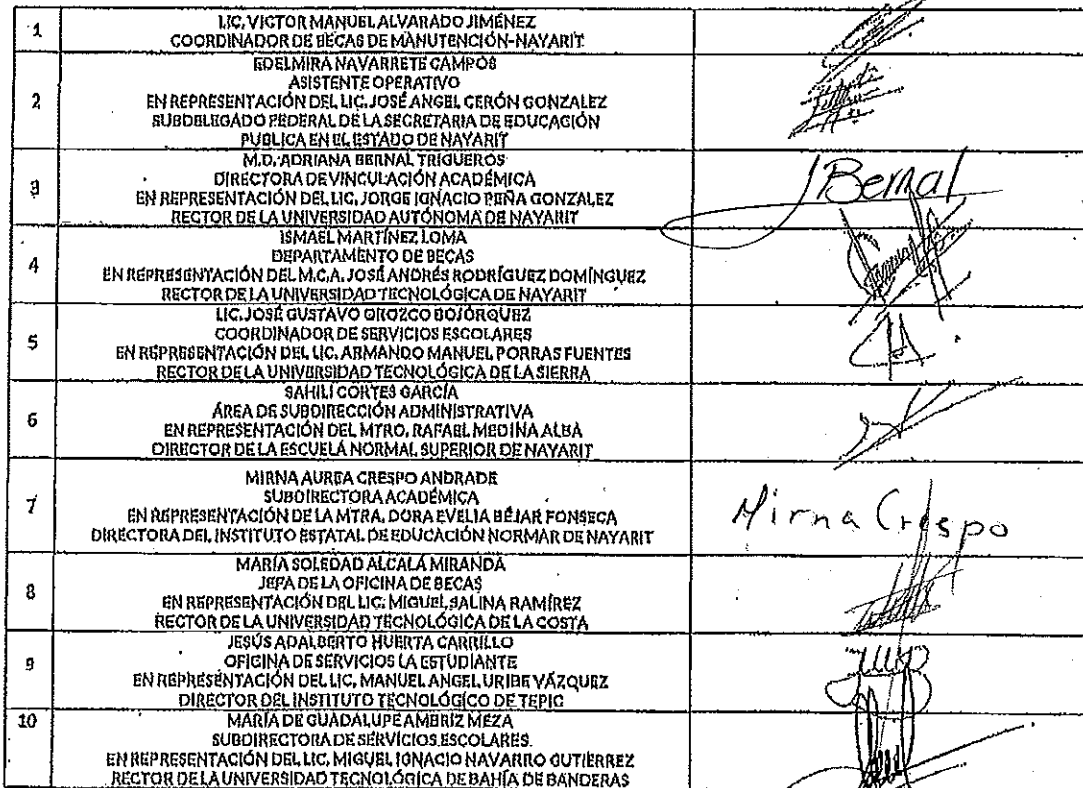 1
LIC. VICTOR MANUEL ALVARADO JIMÉNEZ
COORDINADOR DE BECAS DE MANUTENCIÓN-NAYARIT
2
EDELMIRA NAVARRETE CAMPOS
ASISTENTE OPERATIVO
EN REPRESENTACIÓN DEL LIC. JOSÉ ANGEL CERÓN GONZALEZ
SUBDELEGADO FEDERAL DE LA SECRETARIA DE EDUCACIÓN
PUBLICA EN EL ESTADO DE NAYARIT
3
M.D. ADRIANA BERNAL TRIGUEROS
DIRECTORA DE VINCULACIÓN ACADÉMICA
EN REPRESENTACIÓN DEL LIC. JORGE IGNACIO PEÑA GONZALEZ
RECTOR DE LA UNIVERSIDAD AUTÓNOMA DE NAYARIT
Bernal
4
ISMAEL MARTÍNEZ LOMA
DEPARTAMENTO DE BECAS
EN REPRESENTACIÓN DEL M.C.A. JOSÉ ANDRÉS RODRÍGUEZ DOMÍNGUEZ
RECTOR DE LA UNIVERSIDAD TECNOLÓGICA DE NAYARIT
5
LIC. JOSÉ GUSTAVO OROZCO BOJÓRQUEZ
COORDINADOR DE SERVICIOS ESCOLARES
EN REPRESENTACIÓN DEL LIC. ARMANDO MANUEL PORRAS FUENTES
RECTOR DE LA UNIVERSIDAD TECNOLÓGICA DE LA SIERRA
6
SAHILI CORTES GARCÍA
ÁREA DE SUBDIRECCIÓN ADMINISTRATIVA
EN REPRESENTACIÓN DEL MTRO. RAFAEL MEDINA ALBA
DIRECTOR DE LA ESCUELA NORMAL SUPERIOR DE NAYARIT
7
MIRNA AUREA CRESPO ANDRADE
SUBDIRECTORA ACADÉMICA
EN REPRESENTACIÓN DE LA MTRA. DORA EVELIA BÉJAR FONSECA
DIRECTORA DEL INSTITUTO ESTATAL DE EDUCACIÓN NORMAR DE NAYARIT
Mirna Crespo
8
MARÍA SOLEDAD ALCALÁ MIRANDA
JEFA DE LA OFICINA DE BECAS
EN REPRESENTACIÓN DEL LIC. MIGUEL SALINA RAMÍREZ
RECTOR DE LA UNIVERSIDAD TECNOLÓGICA DE LA COSTA
9
JESÚS ADALBERTO HUERTA CARRILLO
OFICINA DE SERVICIOS LA ESTUDIANTE
EN REPRESENTACIÓN DEL LIC. MANUEL ANGEL URIBE VÁZQUEZ
DIRECTOR DEL INSTITUTO TECNOLÓGICO DE TEPIC
10
MARÍA DE GUADALUPE AMBRIZ MEZA
SUBDIRECTORA DE SERVICIOS ESCOLARES.
EN REPRESENTACIÓN DEL LIC. MIGUEL IGNACIO NAVARRO GUTIÉRREZ
RECTOR DE LA UNIVERSIDAD TECNOLÓGICA DE BAHÍA DE BANDERAS